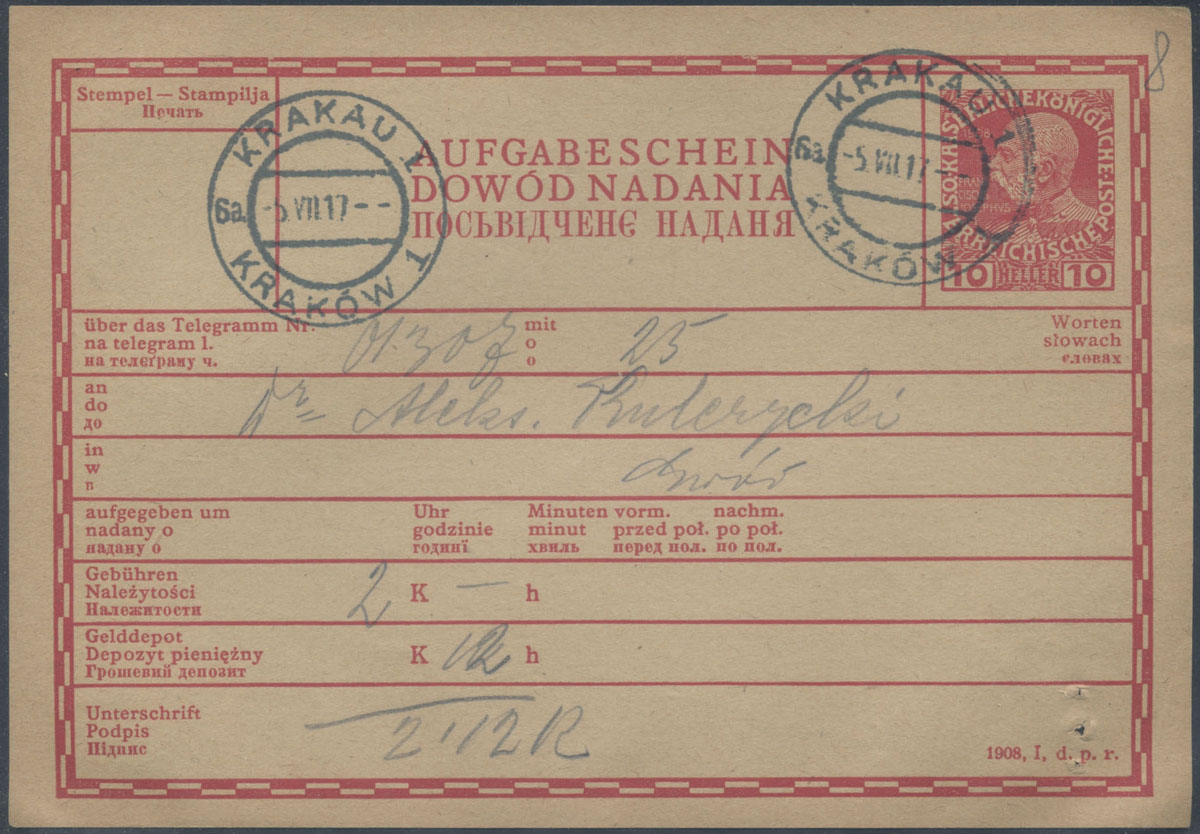 8
Stempel — Stampilja
Печать
KRAKAU 1
6a
-5.VII.17--
KRAKÓW 1
AUFGABESCHEIN
DOWÓD NADANIA
ПОСЬВІДЧЕНЄ НАДАНЯ
KRAKAU 1
6a
-5.VII.17-
KRAKÓW 1
KAISERLICHE KÖNIGLICHE ÖSTERREICHISCHE POST
1908
10 HELLER 10
über das Telegramm Nr. mit 25 Worten
na telegram l. o słowach
на телєґраму ч. о словах
an Dr Aleks.
do
до
in
w
в
aufgegeben um Uhr Minuten vorm. nachm.
nadany o godzinie minut przed poł. po poł.
наданy о годинї хвиль перед пол. по пол.
Gebühren
Należytości 2 K — h
Належитости
Gelddepot
Depozyt pieniężny K 12 h
Грошевий депозит
Unterschrift
Podpis 2'12 K
Підпис
1908, I, d. p. r.